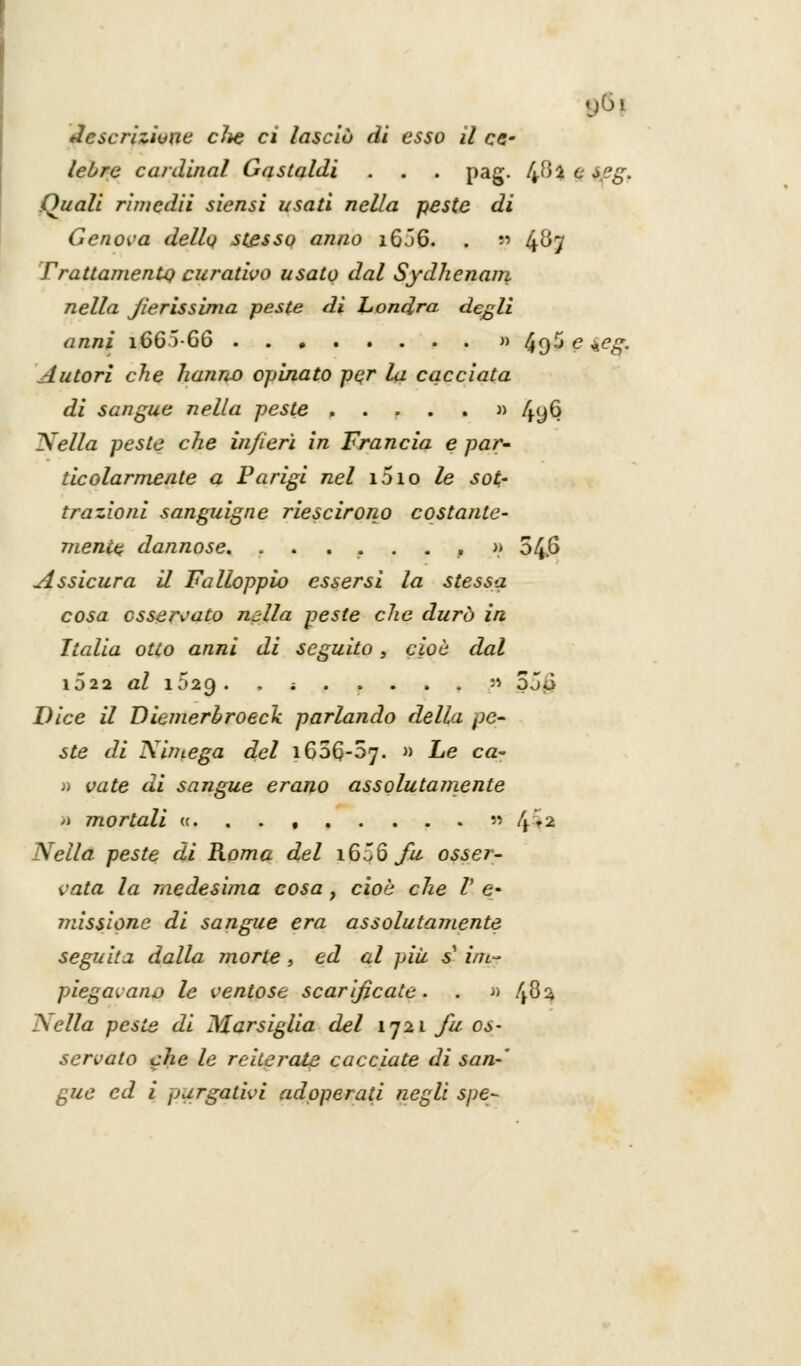 961
descrizione che ci lasciò di esso il ce-
lebre cardinal Gastaldi . . . pag. 482 e seg.
Quali rimedii siensi usati nella peste di
Genova dello stesso anno 1656. . » 487
Trattamento curativo usato dal Sydhenam
nella fierissima peste di Londra degli
anni 1665-66 . . . . . . . . » 495 e seg.
Autori che hanno opinato per la cacciata
di sangue nella peste . . . . . » 496
Nella peste che infierì in Francia e par-
ticolarmente a Parigi nel 1510 le sot-
trazioni sanguigne riescirono costante-
mente dannose. . . . . . . . »
Assicura il Falloppio essersi la stessa
cosa osservato nella peste che durò in
Italia otto anni di seguito, cioè dal
1522 al 1529 . . . . . . . . »
Dice il Diemerbroeck parlando della pe-
ste di Nimega del 1636-37. » Le ca-
» vate di sangue erano assolutamente
» mortali «. . . . . . . . . »
Nella peste di Roma del 1656 fu osser-
vata la medesima cosa, cioè che l' e-
missione di sangue era assolutamente
seguita dalla morte, ed al più s' im-
piegavano le ventose scarificate. . » 482
Nella peste di Marsiglia del 1721 fu os-
servato che le reiterate cacciate di san-
gue ed i purgativi adoperati negli spe-